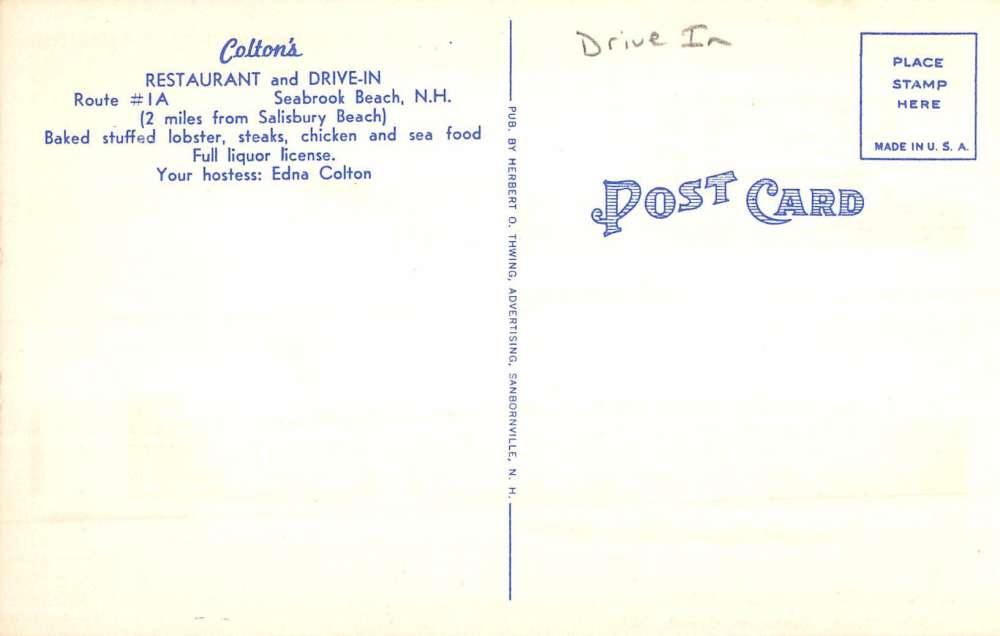 Colton's
RESTAURANT and DRIVE-IN
Route #1A Seabrook Beach, N.H.
(2 miles from Salisbury Beach)
Baked stuffed lobster, steaks, chicken and sea food
Full liquor license.
Your hostess: Edna Colton
PUB. BY HERBERT O. THWING, ADVERTISING, SANBORNVILLE, N. H.
Drive In
PLACE
STAMP
HERE
MADE IN U. S. A.
POST CARD